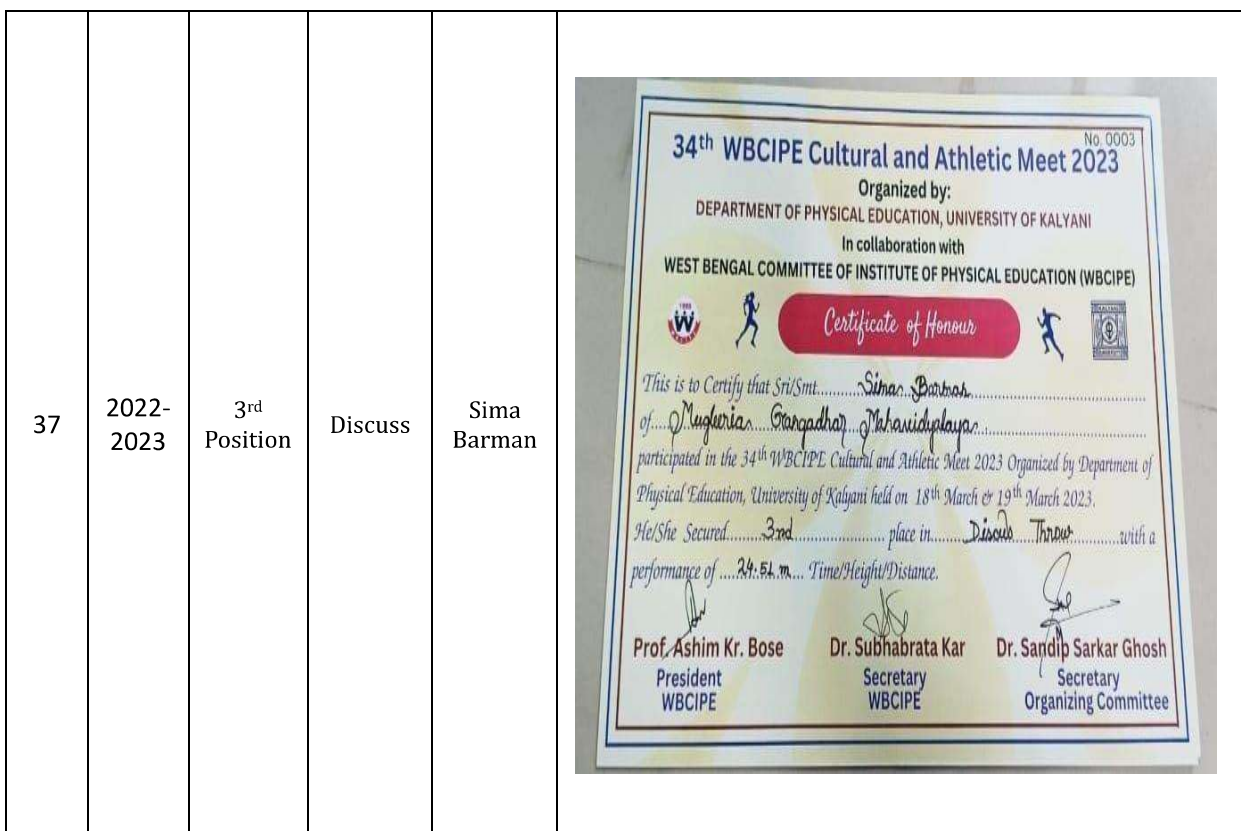 37
2022-
2023
3rd
Position
Discuss
Sima
Barman
No. 0003
34th WBCIPE Cultural and Athletic Meet 2023
Organized by:
DEPARTMENT OF PHYSICAL EDUCATION, UNIVERSITY OF KALYANI
In collaboration with
WEST BENGAL COMMITTEE OF INSTITUTE OF PHYSICAL EDUCATION (WBCIPE)
W
Certificate of Honour
This is to Certify that Sri/Smt. Sima Barman
of Mugberia Gangadhar Mahavidyalaya
participated in the 34th WBCIPE Cultural and Athletic Meet 2023 Organized by Department of
Physical Education, University of Kalyani held on 18th March & 19th March 2023.
He/She Secured 3rd place in Discus Throw with a
performance of 24.51 m Time/Height/Distance.
Prof. Ashim Kr. Bose Dr. Subhabrata Kar Dr. Sandip Sarkar Ghosh
President Secretary Secretary
WBCIPE WBCIPE Organizing Committee